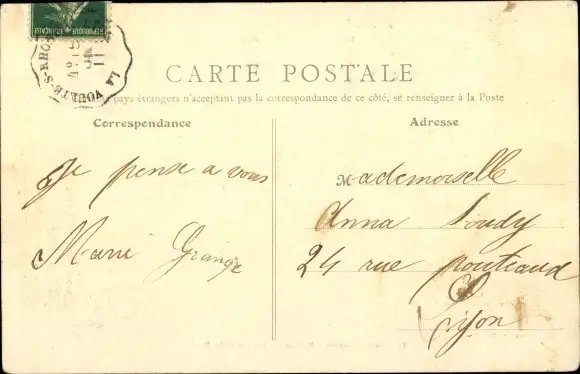 REPUBLIQUE FRANÇAISE
LA VOULTE-S-RHÔNE
CARTE POSTALE
pays étrangers n'acceptant pas la correspondance de ce côté, se renseigner à la Poste
Correspondance
Je pense a vous
Marie Grange
Adresse
Mademoiselle
Anna
24 rue
Lyon